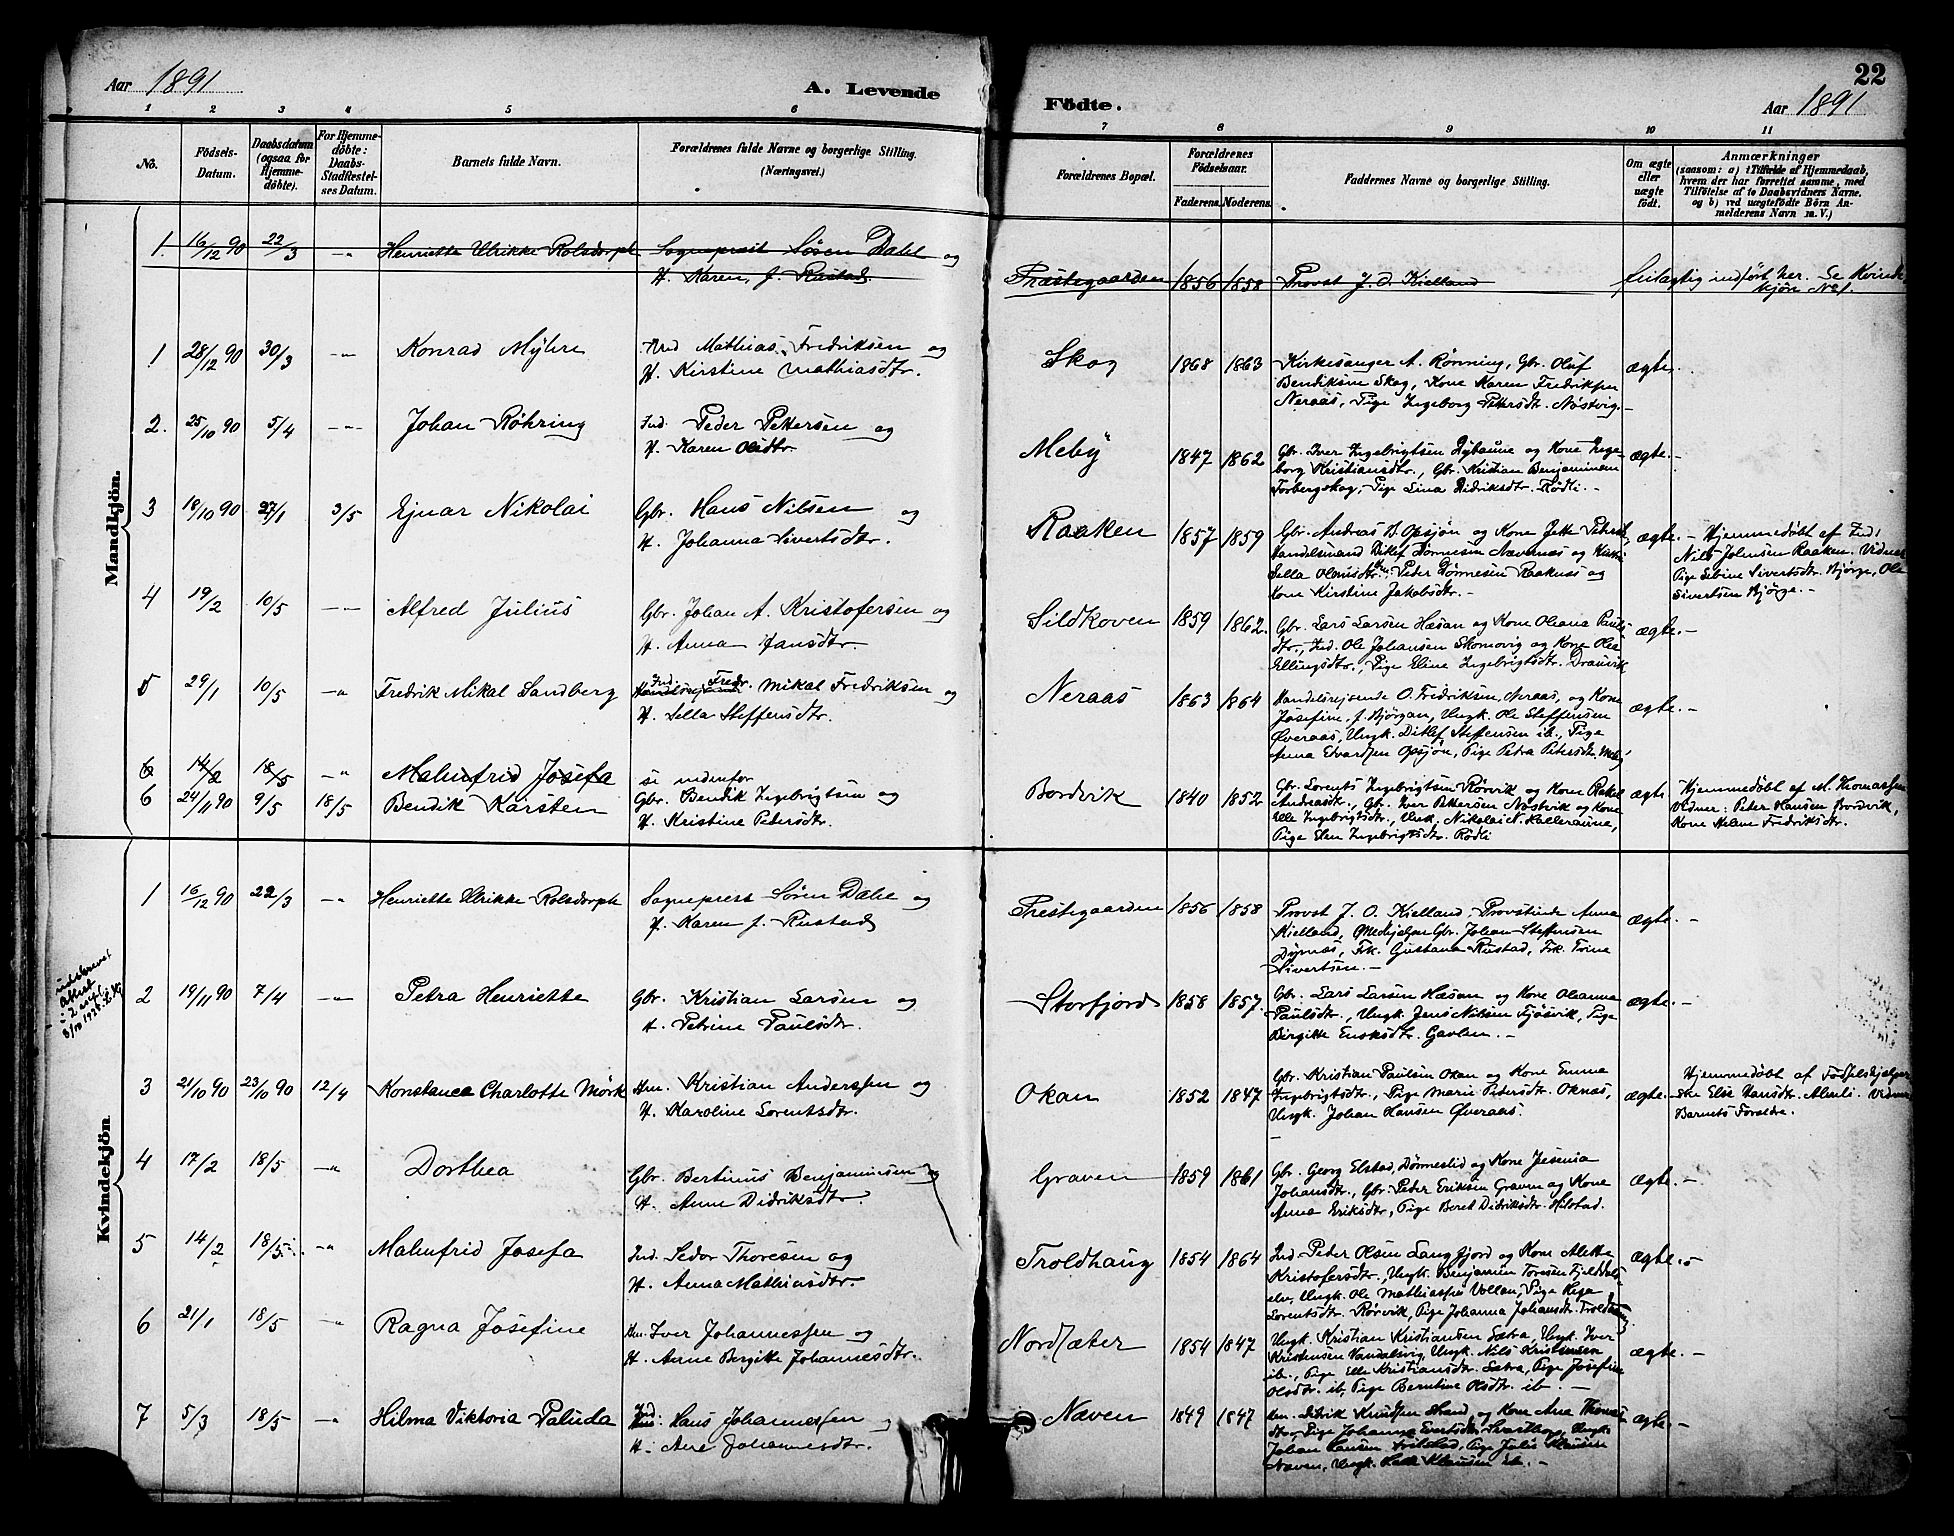 Aar 1891
A. Levende
Födte.
22
Aar 1891
1 2 3 4 5 6 7 8 9 10 11
No.
Födsels-Datum.
Daabsdatum (ogsaa for Hjemme-döbte).
For Hjemme-döbte: Daabs-Stadfæstel-ses Datum.
Barnets fulde Navn.
Forældrenes fulde Navne og borgerlige Stilling. (Næringsvei.)
Forældrenes Bopæl.
Forældrenes Födselsaar.
Faderens. Moderens.
Faddernes Navne og borgerlige Stilling.
Om ægte eller uægte födt.
Anmærkninger
(saasom: a) i Tilfælde af Hjemmedaab,
hvem der har forrettet samme, med
Tilföielse af to Daabsvidners Navne,
og b) ved uægtefödte Börn An-
melderens Navn m. V.)
Mandkjön.
1. 16/12 90 22/3 -„- Henriette Ulrikke Rolsdorph Sogneprest Søren Dahl og
H. Karen, f. Rustad.
Præstegaarden 1856 1858 Provst J. O. Kielland feilagtig indført her. Se Kvinde-
kjön No 1.
1 28/12 90 30/3 -„- Konrad Myhre Ind. Mathias Fredriksen og
H. Kirstine Mathiasdtr.
Skog 1868 1863 Kirkesanger A. Rønning, Gbr. Oluf
Bendiksen Skog, Kone Karen Fredriksen
Neraas, Pige Ingeborg Petersdtr. Nøstvig.-
ægte.
2. 25/10 90 5/4 -„- Johan Röhring Ind. Peder Pettersen og
H. Karen Olsdtr.
Meby 1847 1862 Gbr. Iver Ingebrigtsen Nybaune og Kone Inge-
borg Kristiansdtr., Gbr. Kristian Benjaminsen
Torbergskog, Pige Lina Didriksdtr. Rödli.-
ægte.-
3 18/10 90 27/1 3/5 Ejnar Nikolai Gbr. Hans Nilsen og
H. Johanna Sivertsdtr.
Raaken 1857 1859 Gbr. Andreas B. Opsjøn og Kone Jette Petersdtr,
Handelsmand Ditlef Dønnesen Nævernes og
Sella Olausdtr. Peter Dønnesen Raaknes og
Kone Kirstine Jakobsdtr.-
ægte.- Hjemmedøbt af Ind.
Nils Johnsen Raaken. Vidner
Pige Sibine Sivertsdtr. Bjørge, Ole
Sivertsen Bjørge.-
4 19/2 10/5 -„- Alfred Julius Gbr. Johan A. Kristofersen og
H. Anna Jansdtr.
Sildkoven 1859 1862. Gbr. Lars Larsen Hæsan og Kone Oleana Pauls-
dtr., Ind. Ole Johansen Skomovig og Kone
Ellingsdtr., Pige Eline Ingebrigtsdtr. Dranvik
ægte.-
5 29/1 10/5 -„- Fredrik Mikal Sandberg Ind. Fredr. Mikal Fredriksen og
H. Sella Steffensdtr.
Neraas 1863 1864 Handelsrejsende O. Fredriksen Neraas, og Kone
Josefine, f. Bjørgan, Ungk. Ole Steffensen
Øveraas, Ungk. Ditlef Steffensen ib., Pige
Anna Edvardsen Opsjøn, Pige Petra Petersdtr. Meby
ægte.-
6 14/2 18/5 -„- Malmfrid Josefa se nedenfor
6 24/11 90 9/5 18/5 Bendik Karsten Gbr. Bendik Ingebrigtsen og
H. Kristine Petersdtr.
Bordvik 1840 1852 Gbr. Lorents Ingebrigtsen Rørvik og Kone Rakel
Andreasdtr., Gbr. Iver Pettersen Nøstvik og Kone
Elle Ingebrigtsdtr., Ungk. Nikolai N. Kalleraune,
Pige Elen Ingebrigtsdtr. Rödli
ægte Hjemmedøbt af M. Thomassen
Vidner: Peter Hansen Bordvik,
Kone Helene Fredriksdtr.
Kvindekjön
1 16/12 90 22/3 -„- Henriette Ulrikke Rolsdorph Sogneprest Søren Dahl og
H. Karen f. Rustad
Prestegaarden 1856 1858 Provst J. O. Kielland, Provstinde Anna
Kielland, Gbr. Johan Steffensen
Dynnæs, Frk. Gustava Rustad, Frk. Trine
Sivertsen.-
ægte.-
udskrevet
Attest
2 90 19/11 90 7/4 -„- Petra Henriette Gbr. Kristian Larsen og
H. Petrine Paulsdtr.
Storfjord 1858 1857. Gbr. Lars Larsen Hæsan og Kone Oleanna
Paulsdtr., Ungk. Jens Nilsen Fjøsvik, Pige
Birgitte Enoksdtr. Gavlen.-
ægte.-
3 21/10 90 23/10 90 12/4 Konstance Charlotte Mörk Hm. Kristian Anderssen og
H. Karoline Lorentsdtr.
Okan 1852 1847 Gbr. Kristian Paulsen Okan og Kone Emma
Ingebrigtsdtr., Pige Marie Petersdtr. Oknæs,
Ungk. Johan Hansen Øveraas.
ægte.- Hjemmedøbt af Fødselshjelper-
ske Else Hansdtr. Vidner
Barnets Forældre.
4 17/2 18/5 -„- Dorthea Gbr. Bertinus Benjaminsen og
H. Anne Didriksdtr.
Graven 1859 1861 Gbr. Georg Elstad, Dønneslid og Kone Jesenia
Johansdtr., Gbr. Peder Eriksen Graven og Kone
Anna Eriksdtr, Pige Beret Didriksdtr. Hilstad.
ægte.-
5 14/2 18/5 -„- Malmfrid Josefa Ind. Sedor Thoresen og
H. Anna Mathiasdtr.
Troldhaug 1854 1864 Ind. Peter Olsen Langfjord og Kone Alette
Kristofersdtr., Ungk. Benjamin Toresen Fjelddals-
elv, Ungk. Ole Mathiassen Vollan, Pige
Lorentsdtr. Rørvik, Pige Johanna Johansdtr. Troldhaug
ægte.-
6 21/1 18/5 -„- Ragna Josefine Hm. Iver Johannessen og
H. Anne Bergitte Johannesdtr.
Nordsæter 1854 1847 Ungk. Kristian Kristiansen Sætra, Ungk. Iver
Kristensen Vandalsvig, Ungk. Nils Kristensen
ib., Pige Elle Kristiansdtr. Sætra, Pige Josefine
Olsdtr. ib, Pige Berntine Olsdtr. ib.-
ægte.-
7 5/3 18/5 -„- Hilma Viktoria Paluda Ind. Hans Johannessen og
H. Ane Johannesdtr.
Næven 1849 1847 Hm. Didrik Knudsen Strand og Kone Ane Thomas-
dtr, Pige Johanna Evertsdtr. Svartberg, Ungk.
Johan Hansen, Pige Julie Klausen
Næven, Ungk. Klausen ib.-
ægte.-